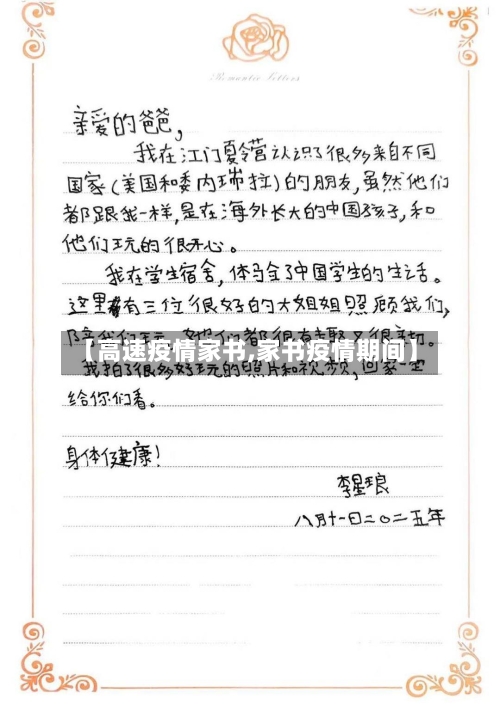 Romantic Letters
亲爱的爸爸,
我在江门夏令营认识了很多来自不同
国家(美国和委内瑞拉)的朋友,虽然他们
都跟我一样,是在海外长大的中国孩子,和
他们玩的很开心。
我在学生宿舍,体验了中国学生的生活。
这里有三位很好的大姐姐照顾我们,
陪我们玩,她们都很有趣又很亲切。
【高速疫情家书,家书疫情期间】
我拍了很多好玩的照片和视频,回家一定
给你们看。
身体健康!
李星琅
八月十一日二〇二五年